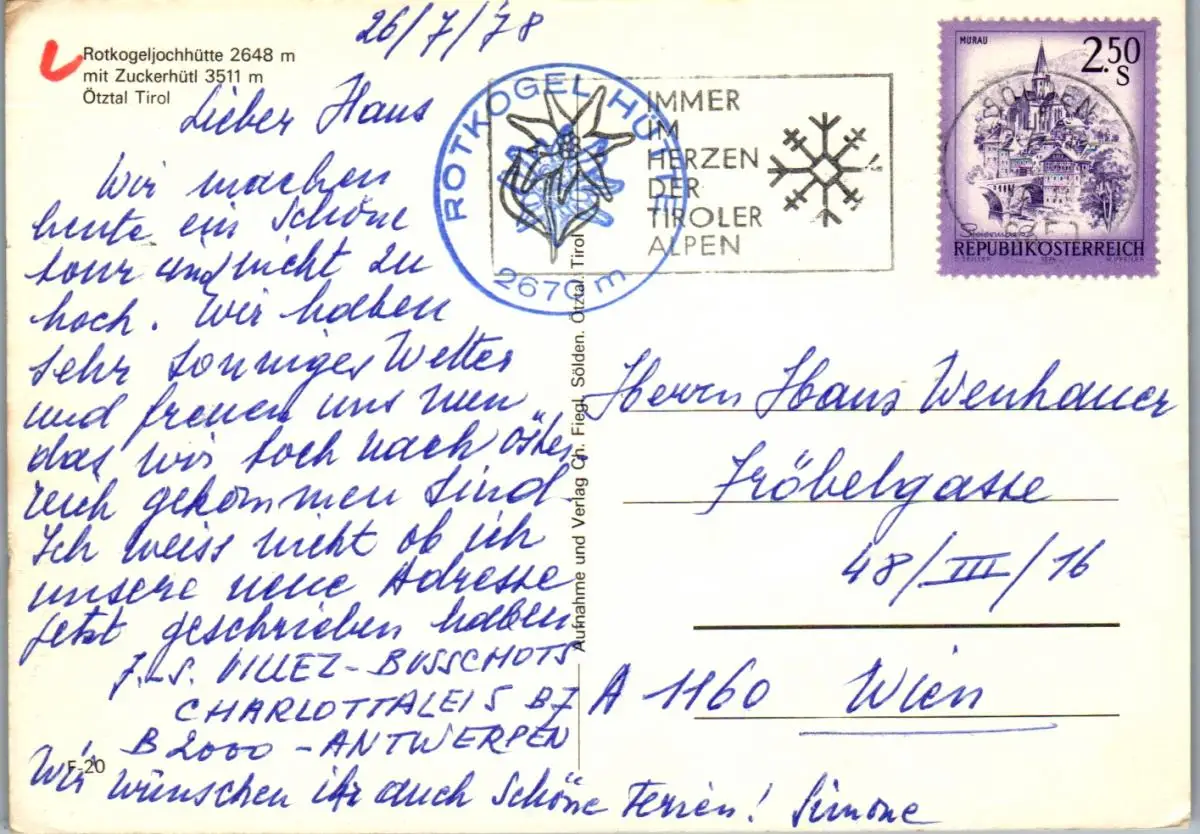 26/7/'78
Rotkogeljochhütte 2648 m
mit Zuckerhütl 3511 m
Ötztal Tirol
Lieber Haus
Wir machen
heute ein schöne
tour und nicht zu
hoch. Wir haben
sehr sonniges Wetter
und freuen uns nun
das wir toch nach Öster
reich gekommen sind
Ich weiss nicht ob ich
unsere neue Adresse
jetzt geschrieben haben
J.L.S. VILLEZ-BUSSCHOTS
CHARLOTTALEI 5 B7
B 2000 - ANTWERPEN
F-20
Wir wünschen ihr auch schöne Ferien! Simone
ROTKOGEL HÜTTE
2670 m
IMMER
IM
HERZEN
DER
TIROLER
ALPEN
MURAU
2.50
S
Steiermark
REPUBLIK ÖSTERREICH
1974
SÖLDEN
Aufnahme und Verlag Ch. Fiegl, Sölden. Ötztal. Tirol
Herrn Hans Wenhauer
Fröbelgasse
48/III/16
A 1160 Wien